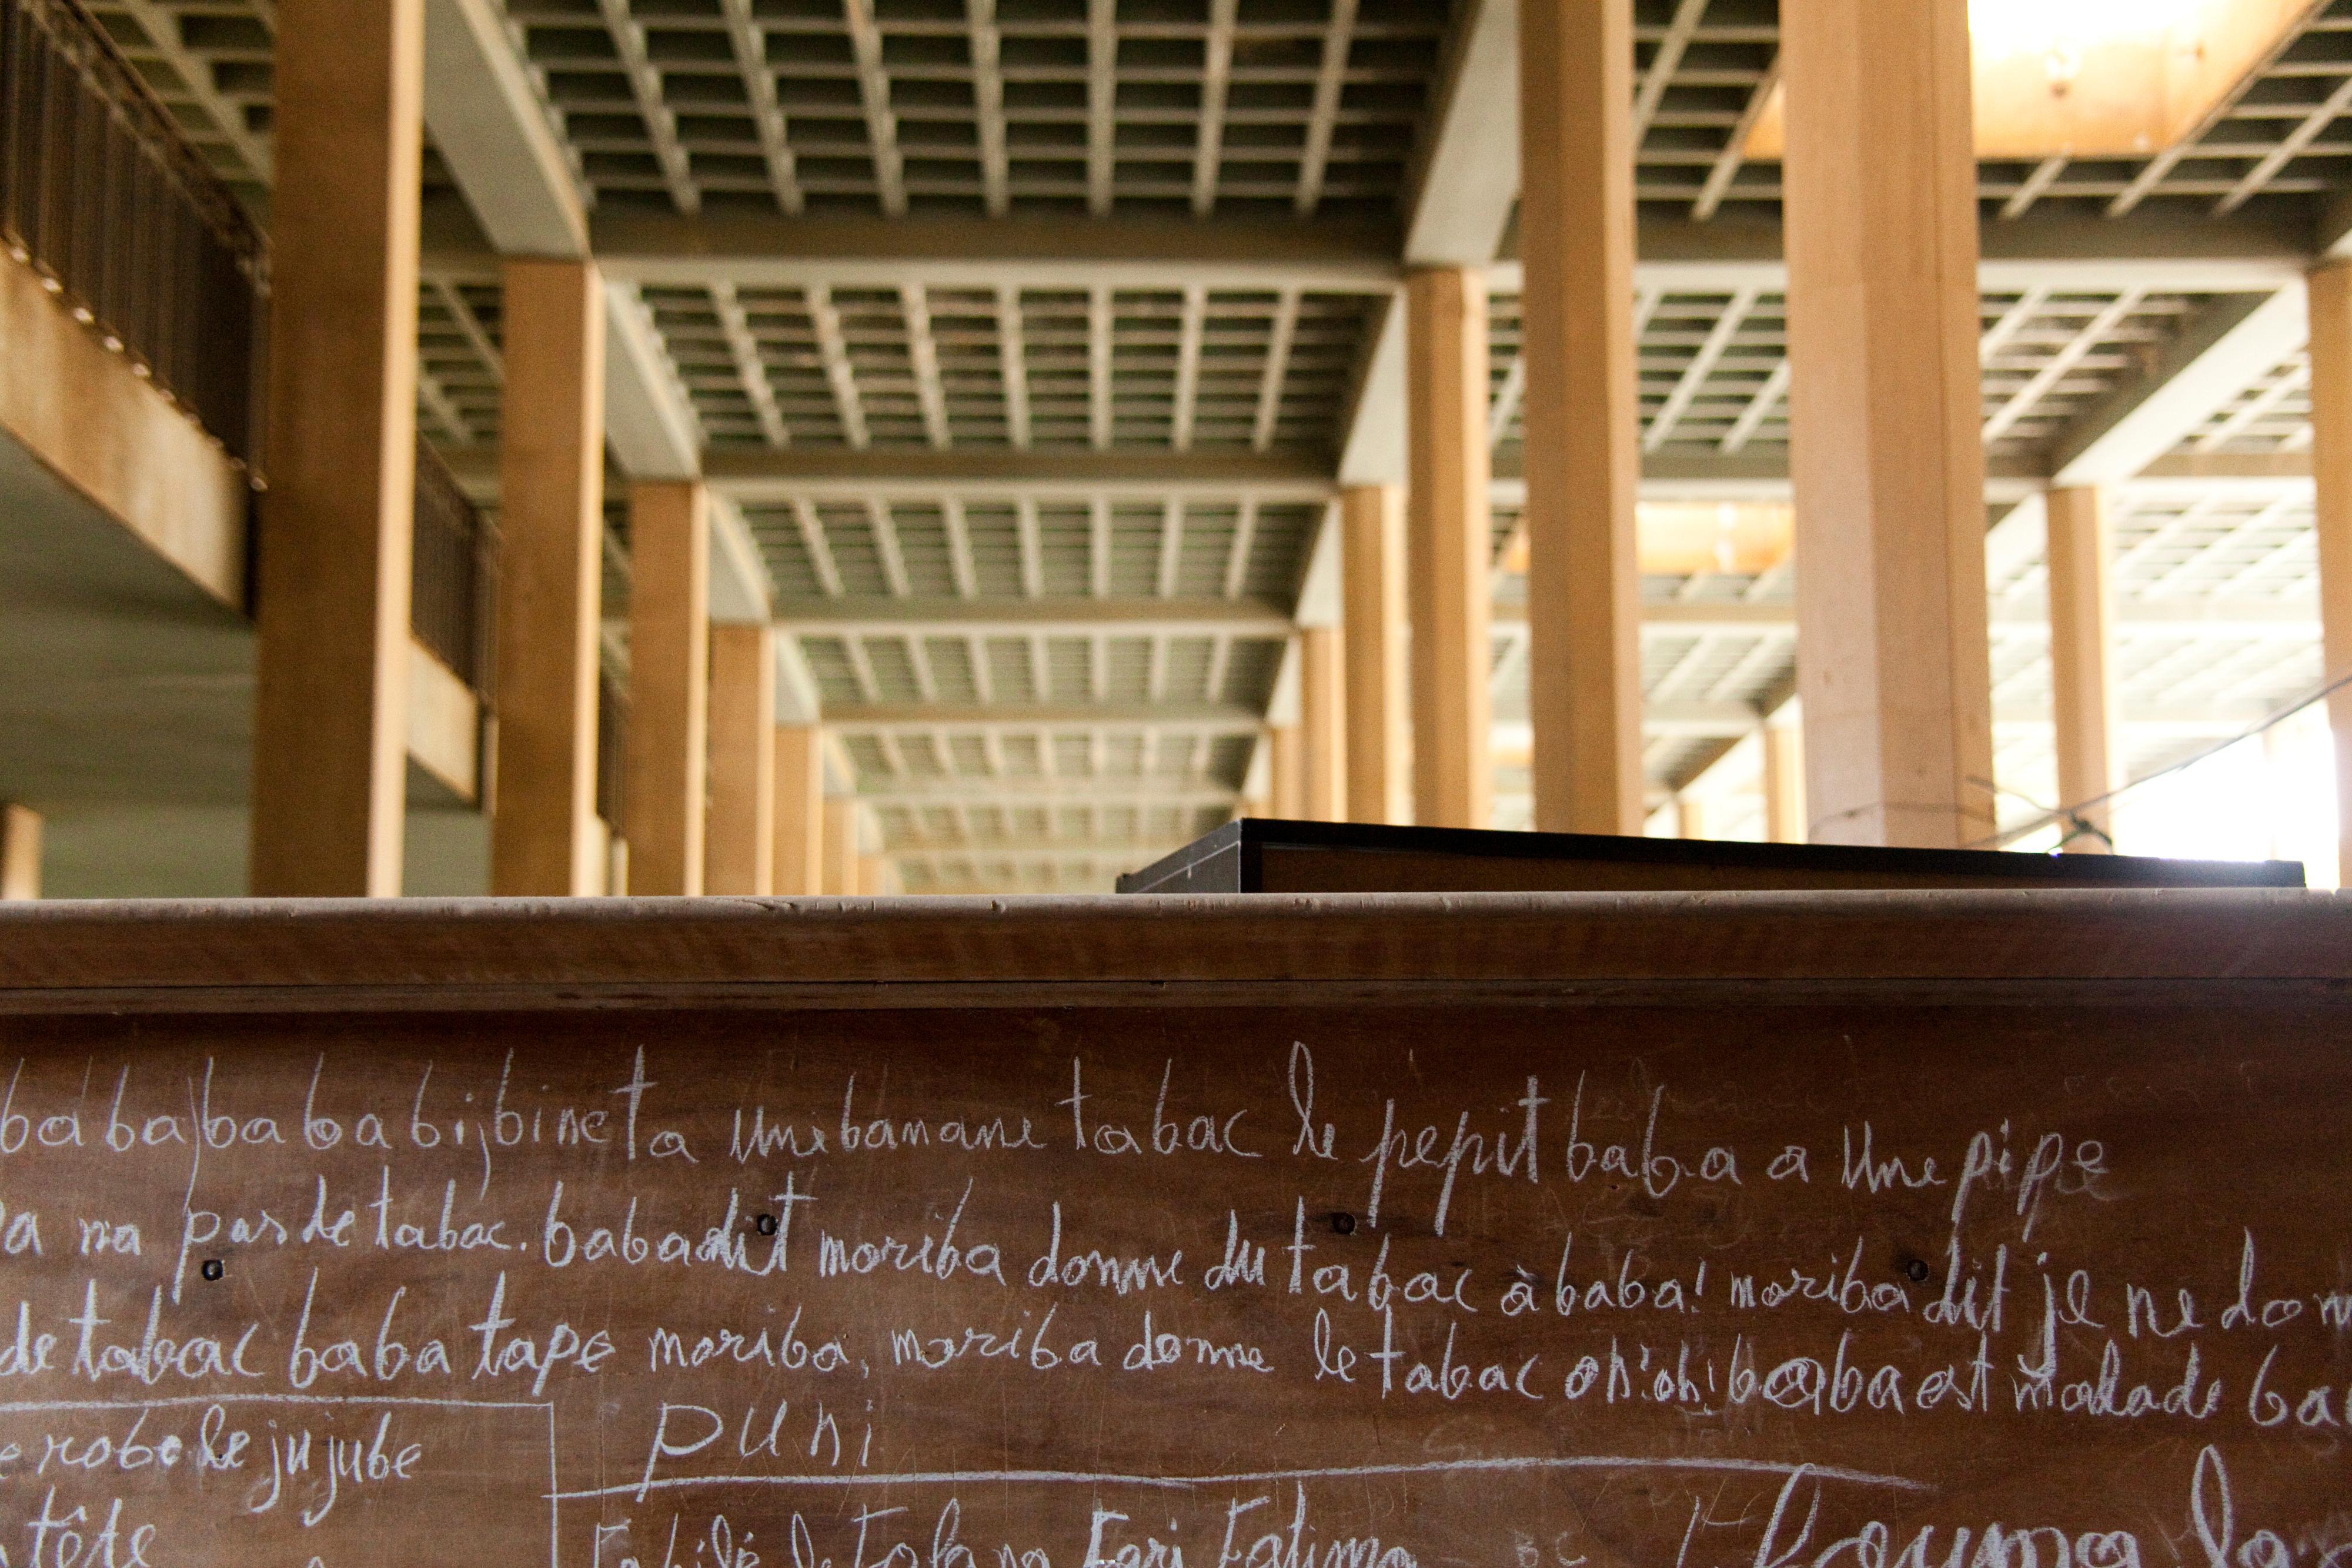 baba baba bijbineta une banane tabac le pepit baba a une pipe
na pas de tabac. baba dit moriba donne du tabac à baba! moriba dit je ne don
de tabac baba tape moriba, moriba donne le tabac oh! oh! baba est malade ba
e robe le jujube
puni
tête
Fatima